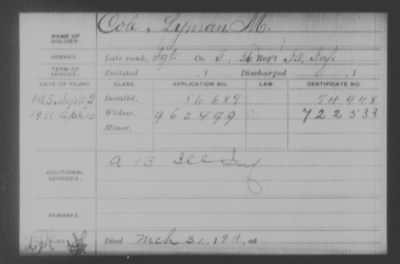 NAME OF SOLDIER: Cole, Lyman M.
SERVICE: Late rank, Sgt Co. I, 56 Reg't Ill. Inf.
TERM OF SERVICE: Enlisted , 1 Discharged , 1
DATE OF FILING. CLASS. APPLICATION NO. LAW. CERTIFICATE NO.
Sept 2 Invalid, 56 689 74 948
1911 Apl 13 Widow, 962499 722533
Minor,
ADDITIONAL SERVICES: A 13 Ill Inf
REMARKS:
Died Mch 31, 1911, at